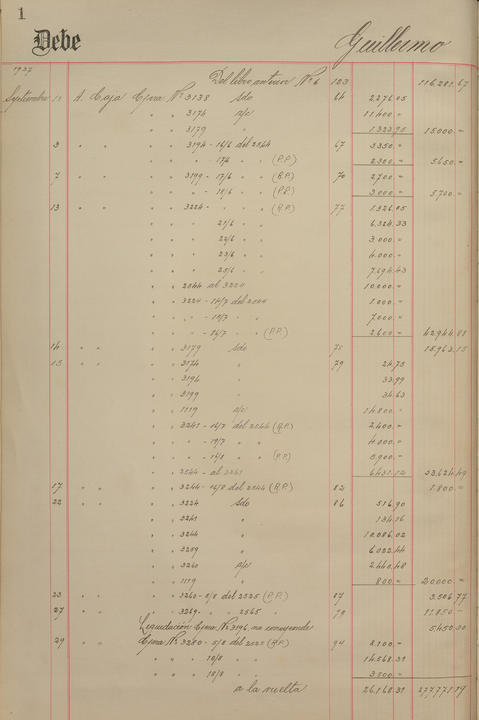 1
Debe Guillermo
1937
Del libro anterior Nº 6 123 116,281.67
Septiembre 11 A. Caja Cpra. Nº 3138 sdo 64 2,276.05
" " 3174 a/c 11,400.-
" " 3179 " 1,323.95 15,000.-
3 " " " " 3194 - 16/6 del 2564 67 3,350.-
" " " 17/6 " " (P.P.) 2,300.- 5,650.-
7 " " " " 3199 - 17/6 " (P.P.) 70 2,700.-
" " " - 18/6 " (P.P.) 3,000.- 5,700.-
13 " " " " 3224 - " " (P.P.) 77 1,326.05
" " 21/6 " " 6,324.33
" " 22/6 " " 3,000.-
" " 23/6 " " 4,000.-
" " 25/6 " " 7,694.43
" " 2544 al 3224 10,000.-
" " 3224 - 14/7 del 2544 1,000.-
" " " - 15/7 " " 7,000.-
" " " - 16/7 " " (P.P.) 2,600.- 42,944.81
14 " " " " 3179 sdo 78 15,963.15
15 " " " " 3174 " 79 24.75
" " 3194 " 33.99
" " 3199 " 34.63
" " 1119 a/c 14,800.-
" " 3241 - 16/7 del 2544 (P.P.) 2,400.-
" " " - 19/7 " " 4,000.-
" " " - 14/8 " " (P.P.) 5,900.-
" " 2544 - al 3241 6,431.12 33,624.49
17 " " " " 3244 - 16/8 del 2544 (P.P.) 83 1,800.-
22 " " " " 3224 sdo 86 516.90
" " 3241 " 134.16
" " 3244 " 10,086.02
" " 3259 " 6,022.44
" " 3260 a/c 2,440.48
" " 1119 " 800.- 20,000.-
23 " " " " 3260 - 5/8 del 2525 (P.P.) 87 3,506.77
27 " " " " 3269 - " " 2565 " 79 11,850.-
Liquidación Cpra. Nº 3196, no corresponde 5,450.30
29 " " Cpra. Nº 3280 - 5/8 del 2525 (P.P.) 94 8,100.-
" " " 10/8 " " 14,568.39
" " " 10/8 " " 3,500.-
a la vuelta 26,168.39 277,771.19